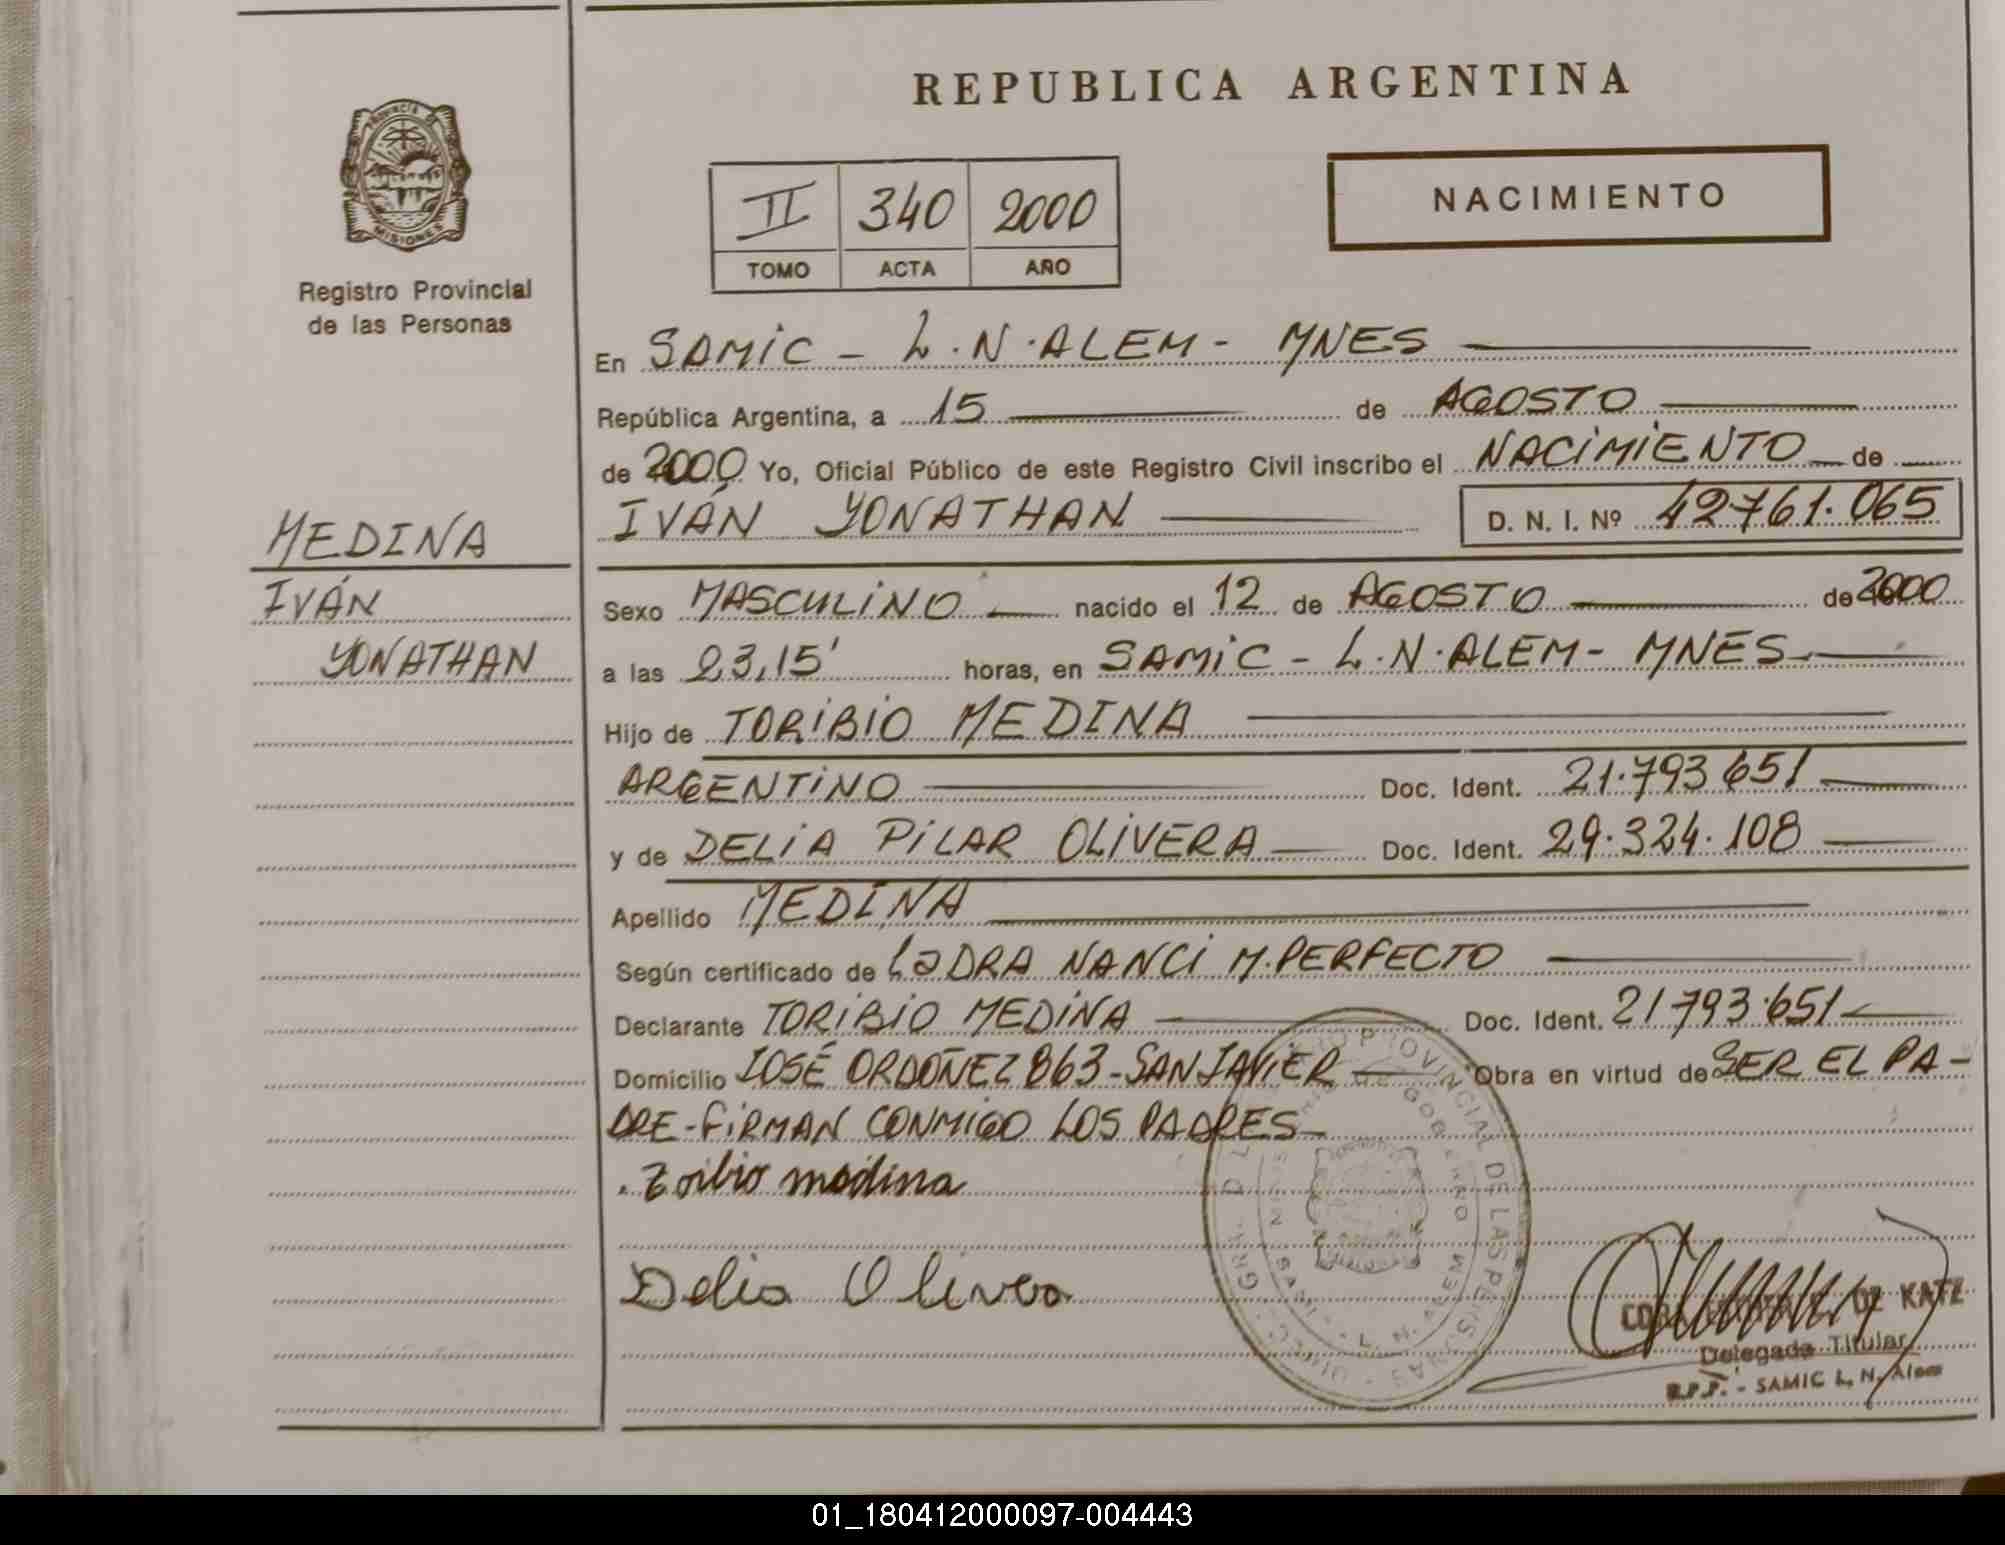 REPUBLICA ARGENTINA
PROVINCIA DE
MISIONES
Registro Provincial
de las Personas
II 340 2000
TOMO ACTA AÑO
NACIMIENTO
En SAMIC - L.N.ALEM - MNES
República Argentina, a 15 de AGOSTO
de 2000 Yo, Oficial Público de este Registro Civil inscribo el NACIMIENTO de
IVÁN YONATHAN D. N. I. Nº 42761.065
MEDINA
IVÁN
YONATHAN
Sexo MASCULINO nacido el 12 de AGOSTO de 2000
a las 23,15' horas, en SAMIC - L.N.ALEM - MNES
Hijo de TORIBIO MEDINA
ARGENTINO Doc. Ident. 21.793 651
y de DELIA PILAR OLIVERA Doc. Ident. 29.324.108
Apellido MEDINA
Según certificado de La DRA NANCI M. PERFECTO
Declarante TORIBIO MEDINA Doc. Ident. 21793.651
Domicilio JOSÉ ORDOÑEZ 863 - SAN JAVIER Obra en virtud de SER EL PA-
DRE - FIRMAN CONMIGO LOS PADRES
Toribio medina
Delia Olivera
PROVINCIAL DE LAS PERSONAS
GOBIERNO
SAMIC L. N. ALEM
DE KATZ
Delegada Titular
R.P.P. - SAMIC L. N. Alem
01_180412000097-004443